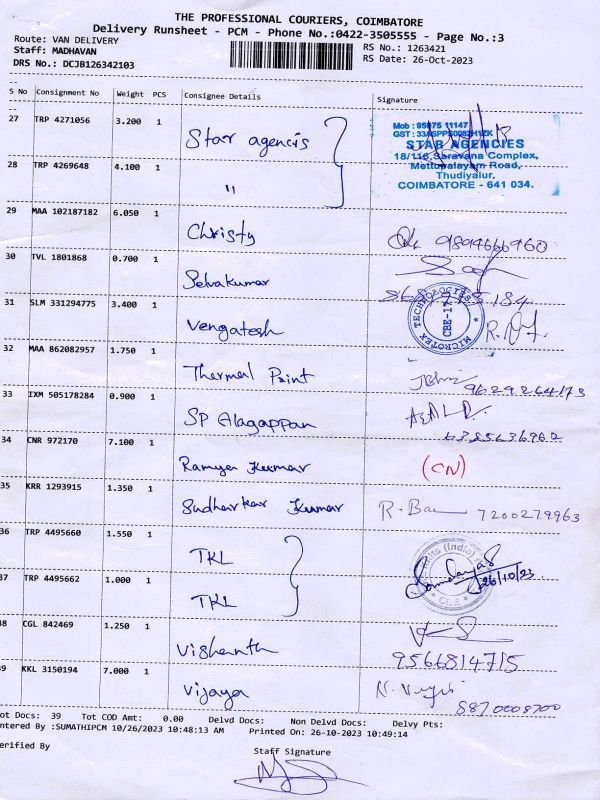 THE PROFESSIONAL COURIERS, COIMBATORE
Delivery Runsheet - PCM - Phone No.:0422-3505555 - Page No.:3
Route: VAN DELIVERY
Staff: MADHAVAN
DRS No.: DCJB126342103
RS No.: 1263421
RS Date: 26-Oct-2023
S No Consignment No Weight PCS Consignee Details Signature
27 TRP 4271056 3.200 1 Star agencis
Mob : 95975 11147
STAR AGENCIES
18/116,Saravana Complex,
Mettupalayam Road,
Thudiyalur,
COIMBATORE - 641 034.
28 TRP 4269648 4.100 1 "
29 MAA 102187182 6.050 1 Christy 9894666960
30 TVL 1801868 0.700 1 Selvakumar
31 SLM 331294775 3.400 1 Vengatesh
MICROTEX TECHNOLOGIES
CBE-17
32 MAA 862082957 1.750 1 Thermal Point 9629264173
33 IXM 505178284 0.900 1 SP Alagappan
34 CNR 972170 7.100 1 Ramya Kumar (CN)
35 KRR 1293915 1.350 1 Sudharkar Kumar R. 7200279963
36 TRP 4495660 1.550 1 TKL
(India)
26/10/23.
37 TRP 4495662 1.000 1 TKL
38 CGL 842469 1.250 1 Vishanth
9566814715
39 KKL 3150194 7.000 1 Vijaya
8870008700
ot Docs: 39 Tot COD Amt: 0.00 Delvd Docs: Non Delvd Docs: Delvy Pts:
ntered By :SUMATHIPCM 10/26/2023 10:48:13 AM Printed On: 26-10-2023 10:49:14
erified By
Staff Signature